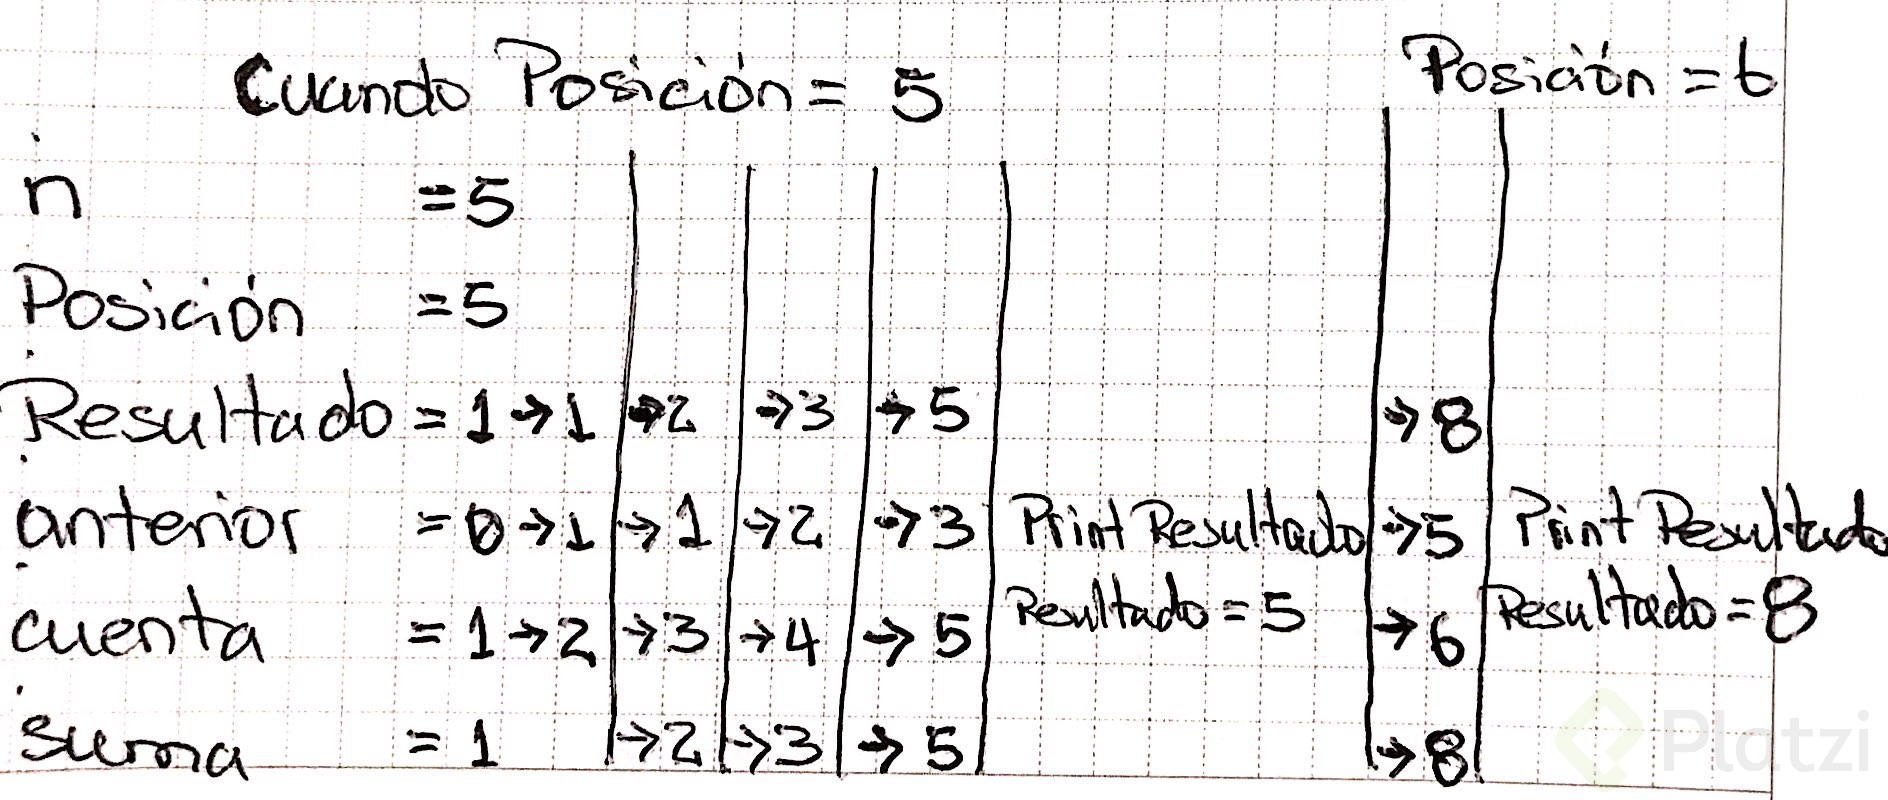 Cuando Posición = 5 Posición = 6
n = 5
Posición = 5
Resultado = 1 → 1 → 2 → 3 → 5 → 8
anterior = 0 → 1 → 1 → 2 → 3 Print Resultado → 5 Print Resultado
Resultado = 5 Resultado = 8
cuenta = 1 → 2 → 3 → 4 → 5 → 6
suma = 1 → 2 → 3 → 5 → 8
Platzi